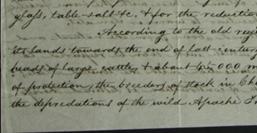 glass, table-salt &c. & for the reduction
According to the old regi
its lands towards the end of last centur
heads of large cattle & about
of protection, the breeding of stock in Ch
the depredations of the wild Apache In